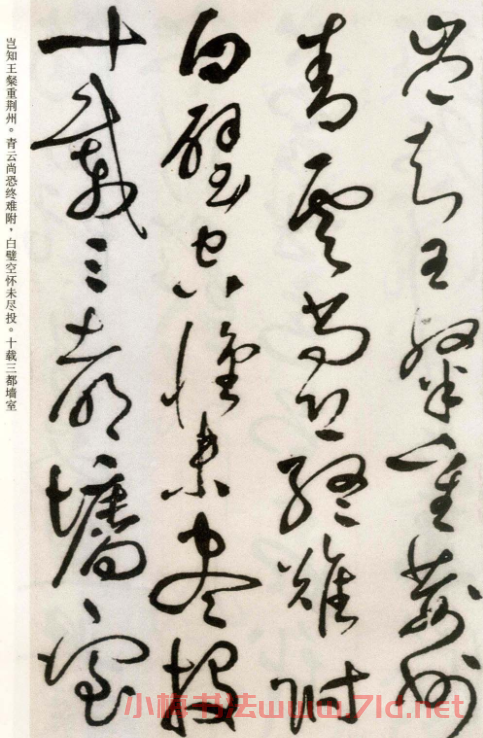 岂知王粲重荆州
青云尚恐终难附
白璧空怀未尽投
十载三都墙室
岂知王粲重荆州。青云尚恐终难附,白璧空怀未尽投。十载三都墙室
小楠书法www.7ld.net